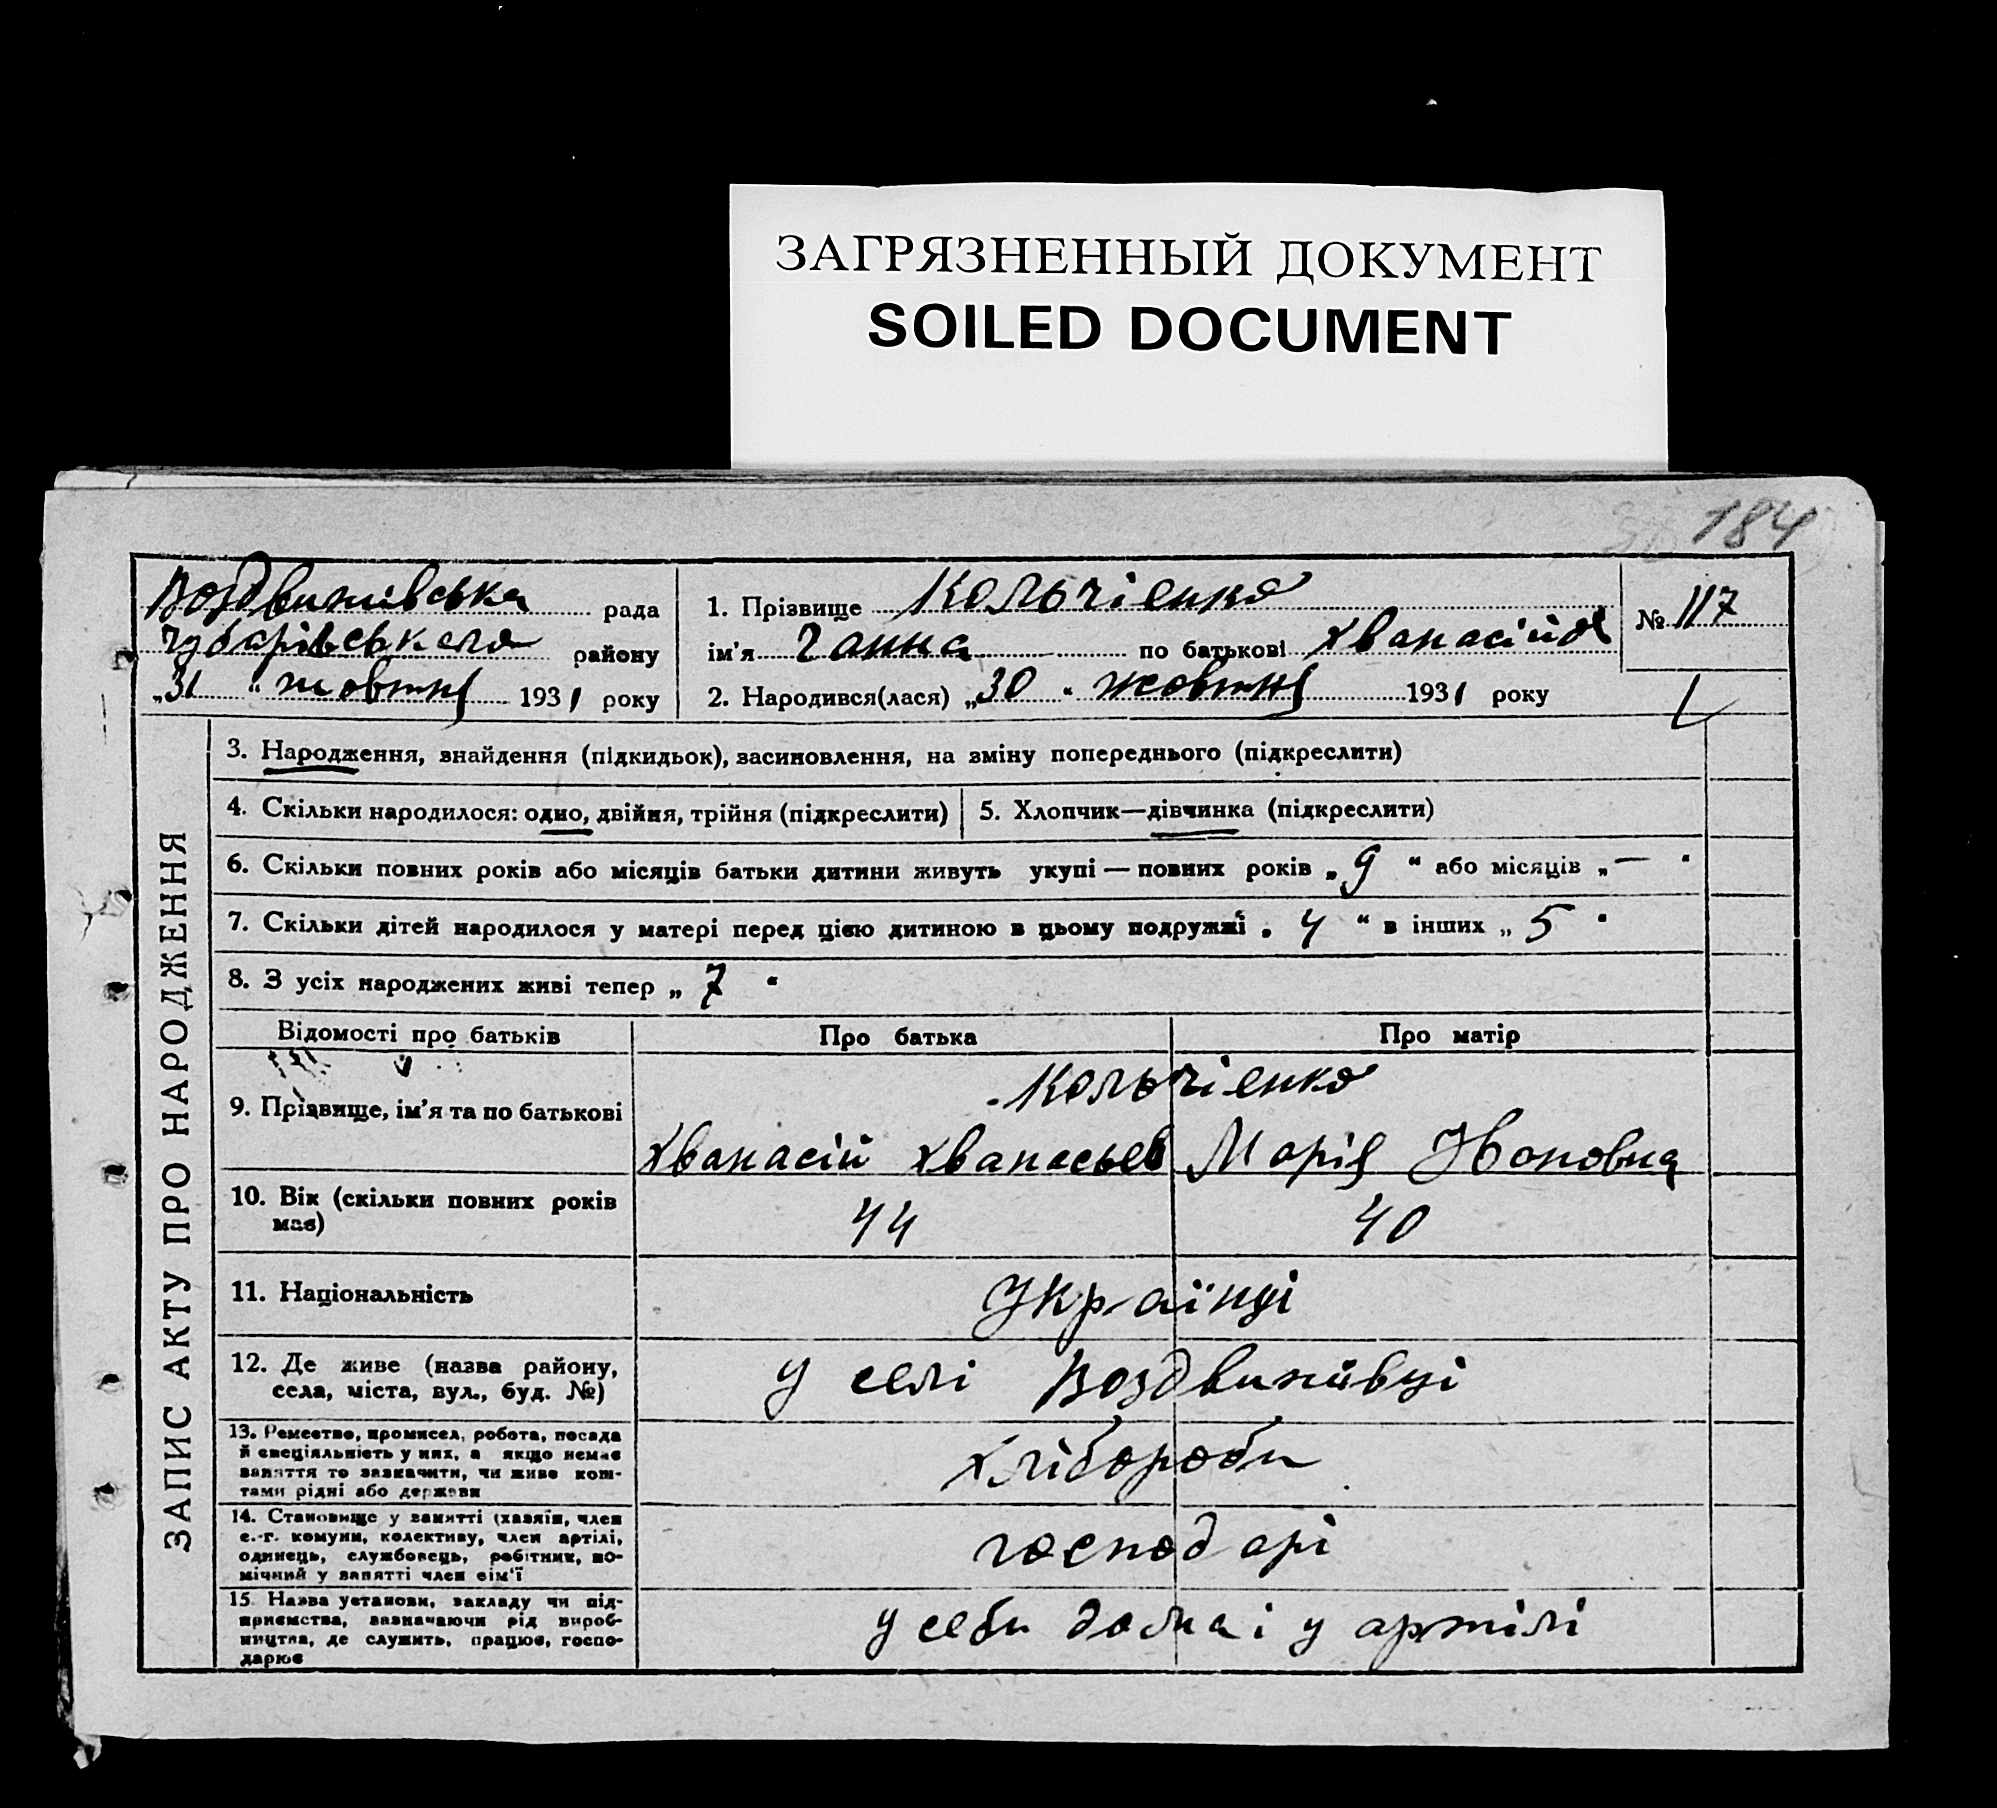 ЗАГРЯЗНЕННЫЙ ДОКУМЕНТ
SOILED DOCUMENT
184
Воздвижівська рада
Чубарівського району
„31 “ жовтня 1931 року
1. Прізвище Кольчієнко
ім'я Ганна по батькові Хванасій
2. Народився(лася) „30 “ жовтня 1931 року
№ 117
ЗАПИС АКТУ ПРО НАРОДЖЕННЯ
3. Народження, знайдення (підкидьок), засиновлення, на зміну попереднього (підкреслити)
4. Скільки народилося: одно, двійня, трійня (підкреслити)
5. Хлопчик—дівчинка (підкреслити)
6. Скільки повних років або місяців батьки дитини живуть укупі — повних років „ 9 “ або місяців „ — “
7. Скільки дітей народилося у матері перед цією дитиною в цьому подружжі „ 4 “ в інших „ 5 “
8. З усіх народжених живі тепер „ 7 “
Відомості про батьків Про батька Про матір
9. Прізвище, ім'я та по батькові
Кольчієнко
Хванасій Хванасьев Марія
10. Вік (скільки повних років має)
44 40
11. Національність
Українці
12. Де живе (назва району, села, міста, вул., буд. №)
У селі Воздвижівці
13. Ремество, промисел, робота, посада
й спеціяльність у них, а якщо немає
заняття то зазначити, чи живе кош-
тами рідні або держави
Хлібороби
14. Становище у занятті (хазяїн, член
с.-г. комуни, колективу, член артілі,
одинець, службовець, робітник, по-
мічний у занятті член сім'ї
господарі
15. Назва установи, закладу чи під-
приємства, зазначаючи рід вироб-
ництва, де служить, працює, госпо-
дарює
у себи дома і у артілі